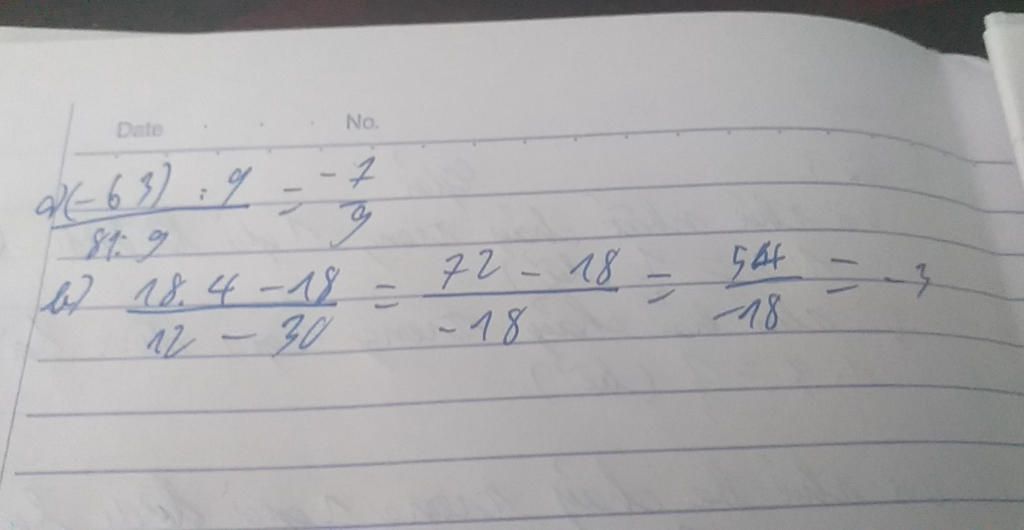 Date No.
a) (-63) : 9 / 81 : 9 = -7 / 9
b) 18.4 - 18 / 12 - 30 = 72 - 18 / -18 = 54 / -18 = -3